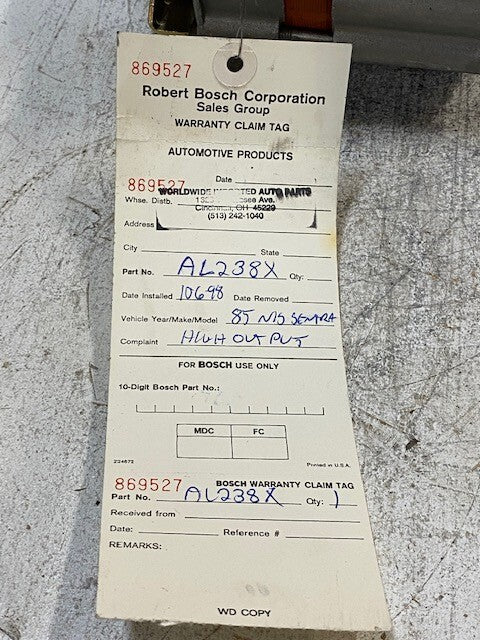 869527
Robert Bosch Corporation
Sales Group
WARRANTY CLAIM TAG
AUTOMOTIVE PRODUCTS
Date
869527
WORLDWIDE IMPORTED AUTO PARTS
Whse. Distb. Ave.
Cincinnati, OH 45229
(513) 242-1040
Address
City State
Part No. AL238X Qty:
Date Installed 10698 Date Removed
Vehicle Year/Make/Model 85 NIS SENTRA
Complaint HIGH OUT PUT
FOR BOSCH USE ONLY
10-Digit Bosch Part No.:
MDC FC
Printed in U.S.A.
869527 BOSCH WARRANTY CLAIM TAG
Part No. AL238X Qty: 1
Received from
Date: Reference #
REMARKS:
WD COPY